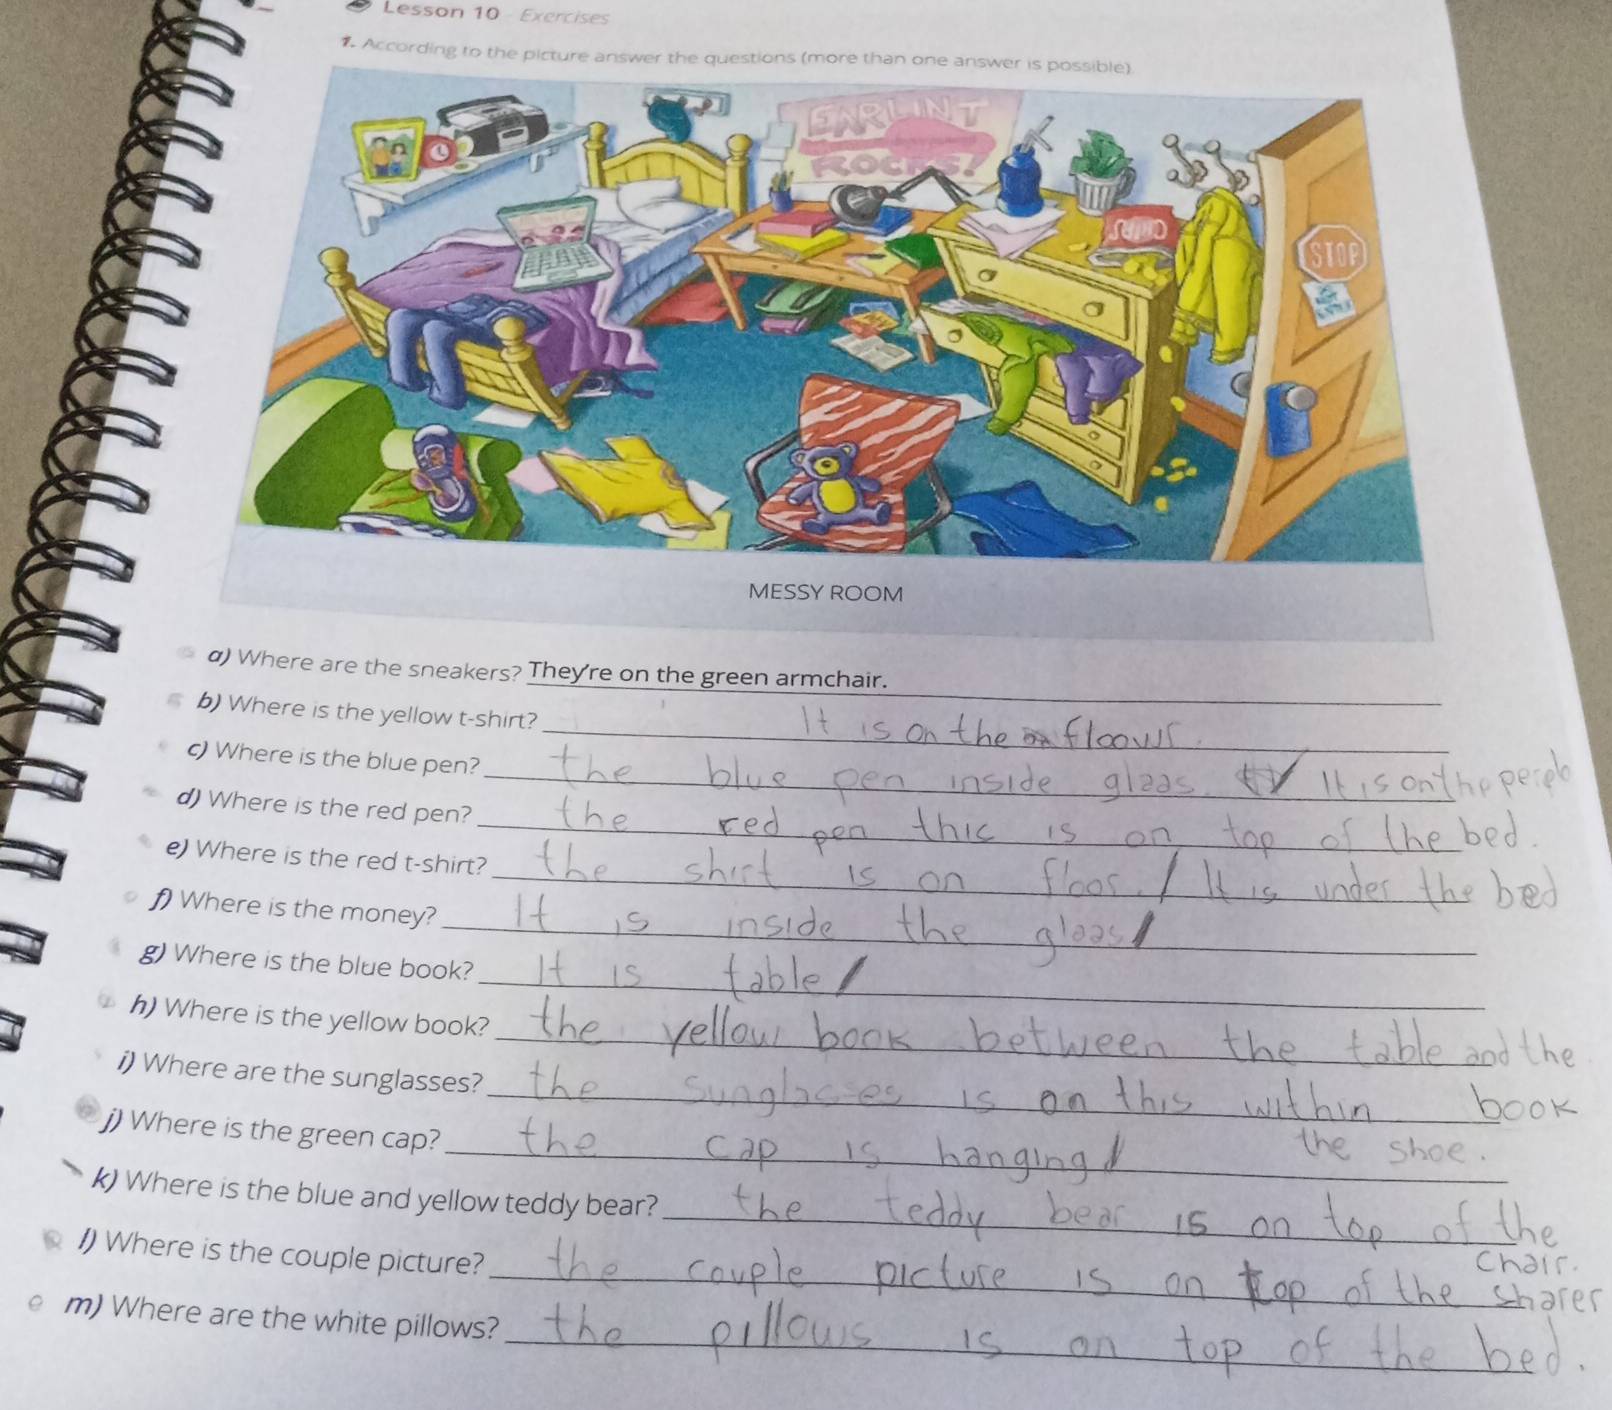 Lesson 10 Exercises
1. According to the picture answer the questions (more than one answer is possible)
EARLINT
ROCKS!
CHIPS
STOP
MESSY ROOM
a) Where are the sneakers? They're on the green armchair.
b) Where is the yellow t-shirt? It is on the floowr.
c) Where is the blue pen? the blue pen inside glaas. It is on the
d) Where is the red pen? the red pen this is on top of the bed.
e) Where is the red t-shirt? the shirt is on floor. / It is under the bed
f) Where is the money? It is inside the glaas/
g) Where is the blue book? It is table/
h) Where is the yellow book? the yellow book between the table and the
book
i) Where are the sunglasses? the sunglasses is on this within
the shoe.
j) Where is the green cap? the cap is hanging/
k) Where is the blue and yellow teddy bear? the teddy bear is on top of the
chair.
l) Where is the couple picture? the couple picture is on top of the sharer
m) Where are the white pillows? the pillows is on top of the bed.